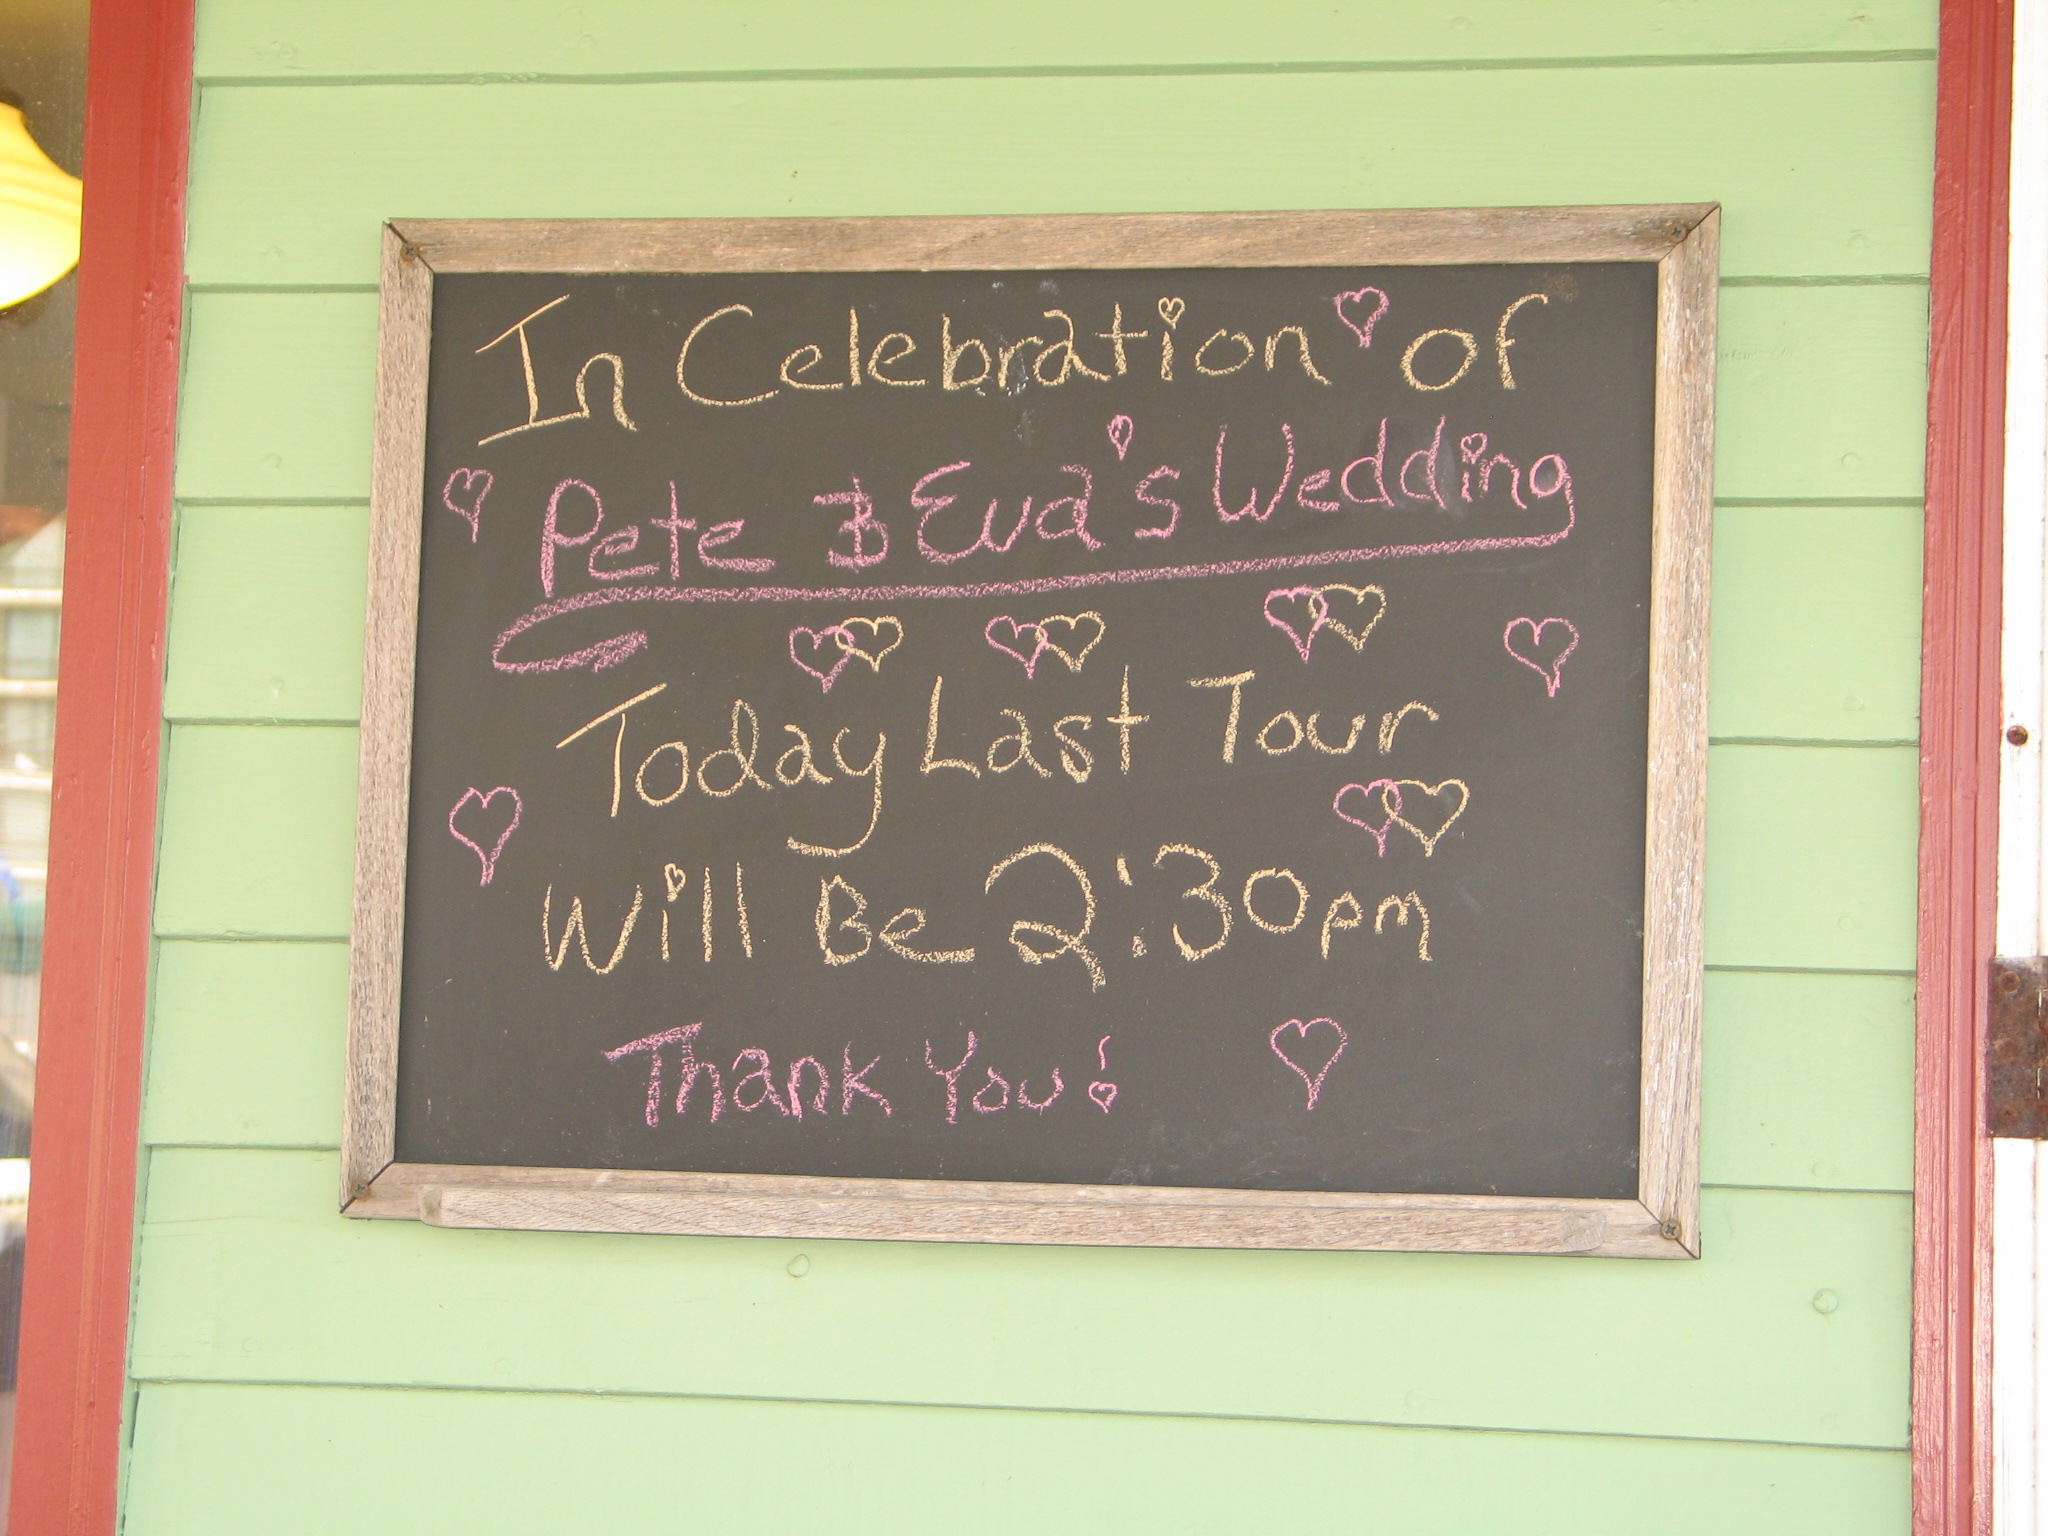 In Celebration of
Pete & Eva's Wedding
Today Last Tour
Will Be 2:30pm
Thank You!